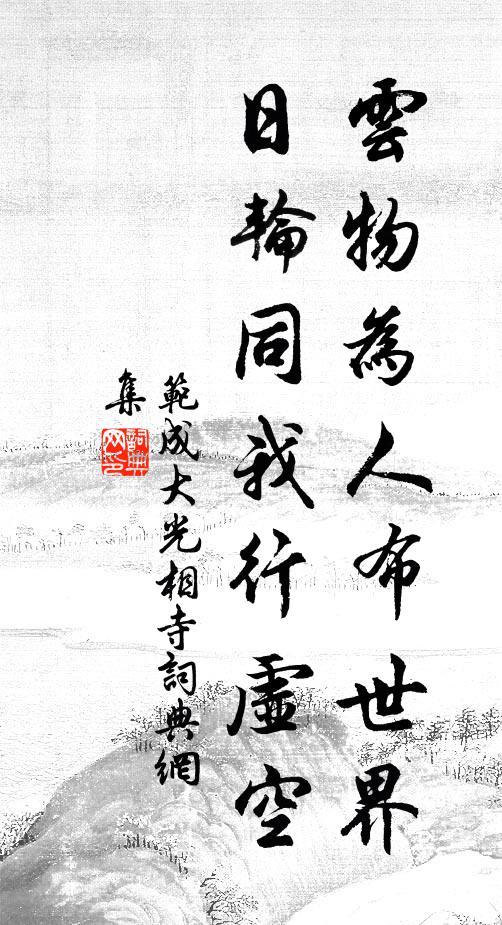 雲物為人布世界
日輪同我行虛空
範成大光相寺詞典網
集
詞典
网印